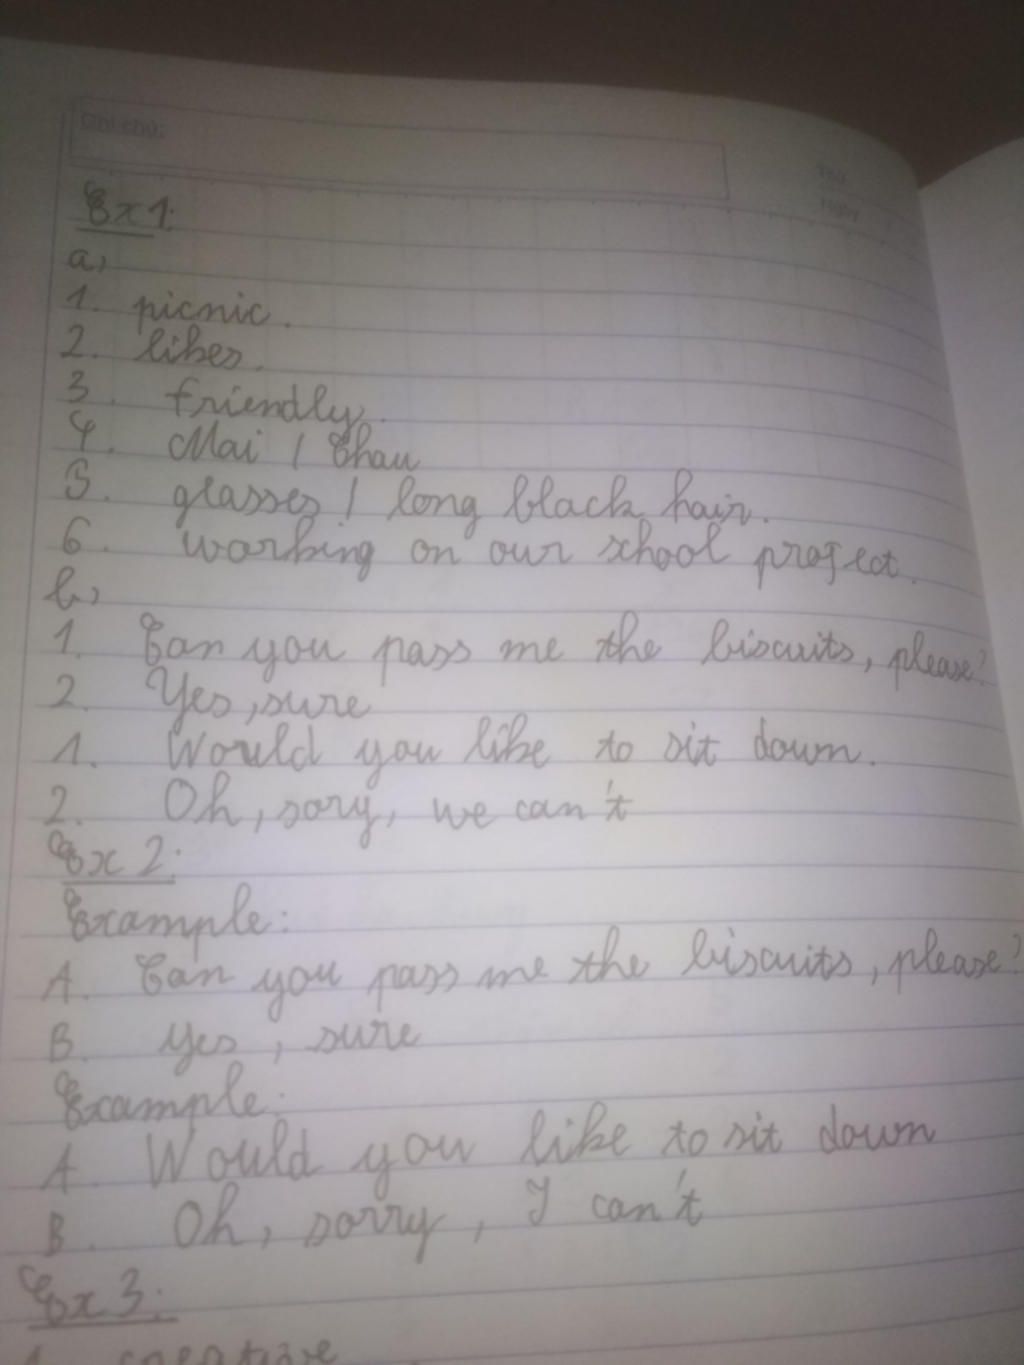 Ghi chú:
Thứ
Ngày
Ex 1:
a,
1. picnic.
2. likes.
3. friendly.
4. Mai / Chau
5. glasses / long black hair.
6. working on our school project.
b,
1. Can you pass me the biscuits, please?
2. Yes, sure
1. Would you like to sit down.
2. Oh, sory, we can't
Ex 2:
Example:
A. Can you pass me the biscuits, please?
B. Yes, sure
Example:
A. Would you like to sit down
B. Oh, sorry, I can't
Ex 3:
1. creative